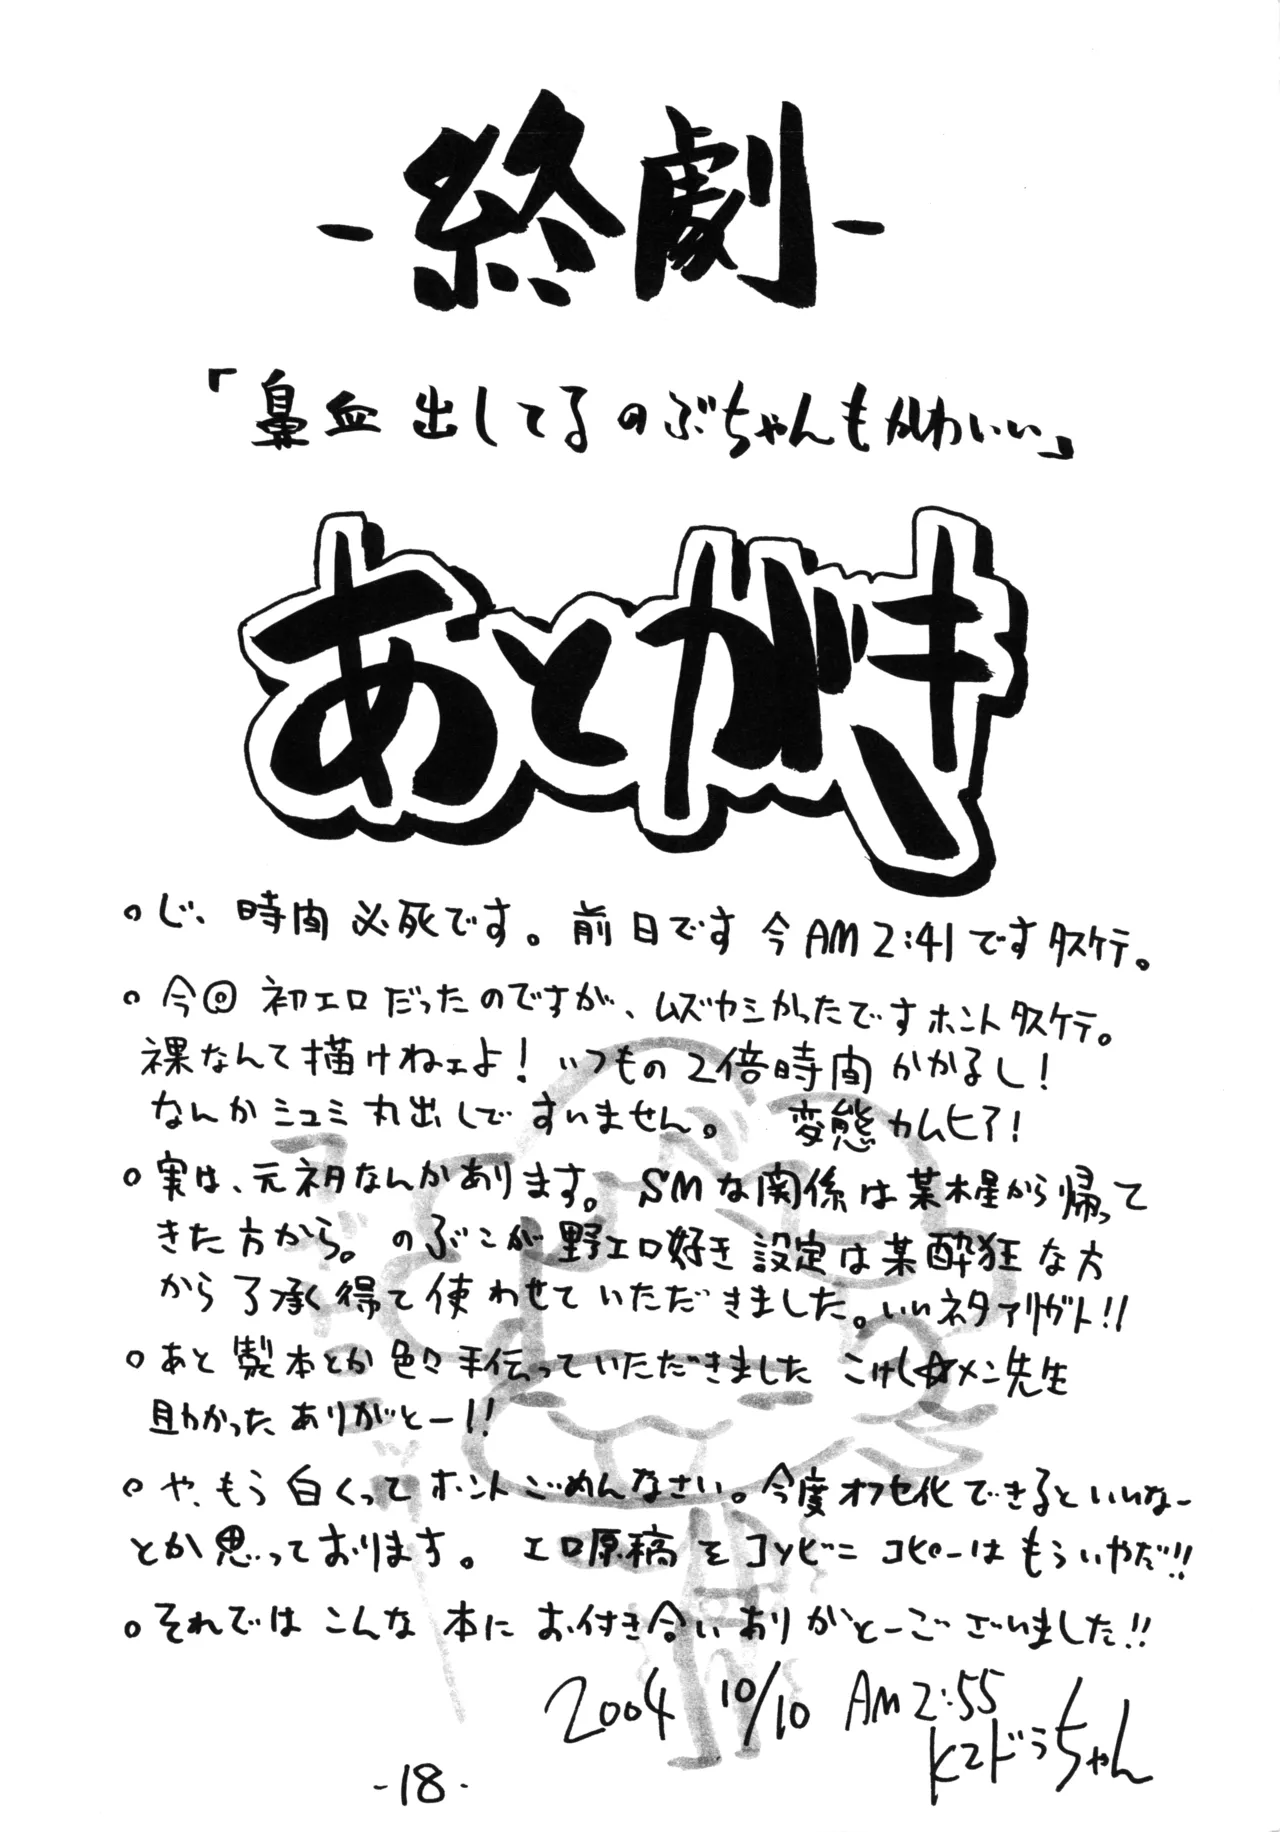 -終劇-
「鼻血出してるのぶちゃんもかわいい」
あとがき
○じ、時間必死です。前日です 今AM2:41ですタスケテ。
○今回初エロだったのですが、ムズカシかったですホントタスケテ。
裸なんて描けねェよ!いつもの2倍時間かかるし!
なんかミュミ丸出しですいません。 変態カムヒア!
○実は、元ネタなんかあります。SMな関係は某木星から帰って
きた方から。のぶこが野エロ好き設定は某酔狂な方
から了承得て使わせていただきました。いいネタアリガト!!
○あと製本とか色々手伝っていただきました こけし☆メン先生
助かったありがとー!!
○や、もう白くってホントごめんなさい。今度オフセ化できるといいなー
とか思っております。エロ原稿をコンビニコピーはもういやだ!!
○それではこんな本にお付き合いありがとーございました!!
2004 10/10 AM2:55
K2ドうちゃん
-18-